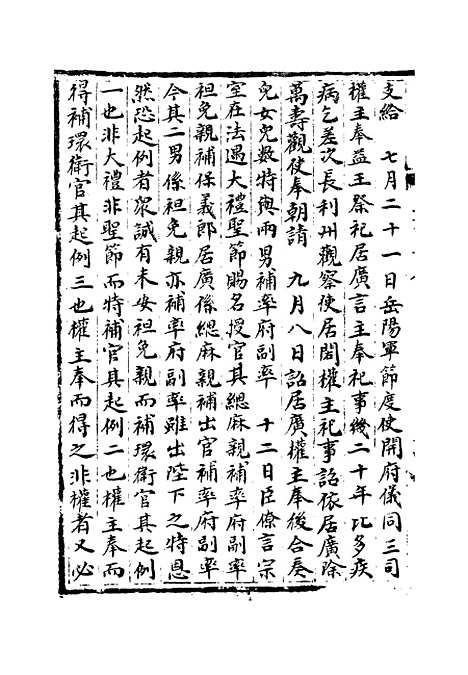 支給　七月二十一日岳陽軍節度使開府儀同三司
權主奉益王祭祀居廣言主奉祀事幾二十年比多疾
病乞差次長利州觀察使居閎權主祀事詔依居廣除
萬壽觀使奉朝請　九月八日詔居廣權主奉後合奏
兒女恩數特與兩男補率府副率　十二日臣僚言宗
室在法遇大禮聖節賜名授官其緦麻親補率府副率
袒免親補保義郎居廣係緦麻親補出官補率府副率
今其二男係袒免親亦補率府副率雖出陛下之特恩
然恐起例者衆誠有未安袒免親而補環衛官其起例
一也非大禮非聖節而特補官其起例二也權主奉而
得補環衛官其起例三也權主奉而得之非權者又必